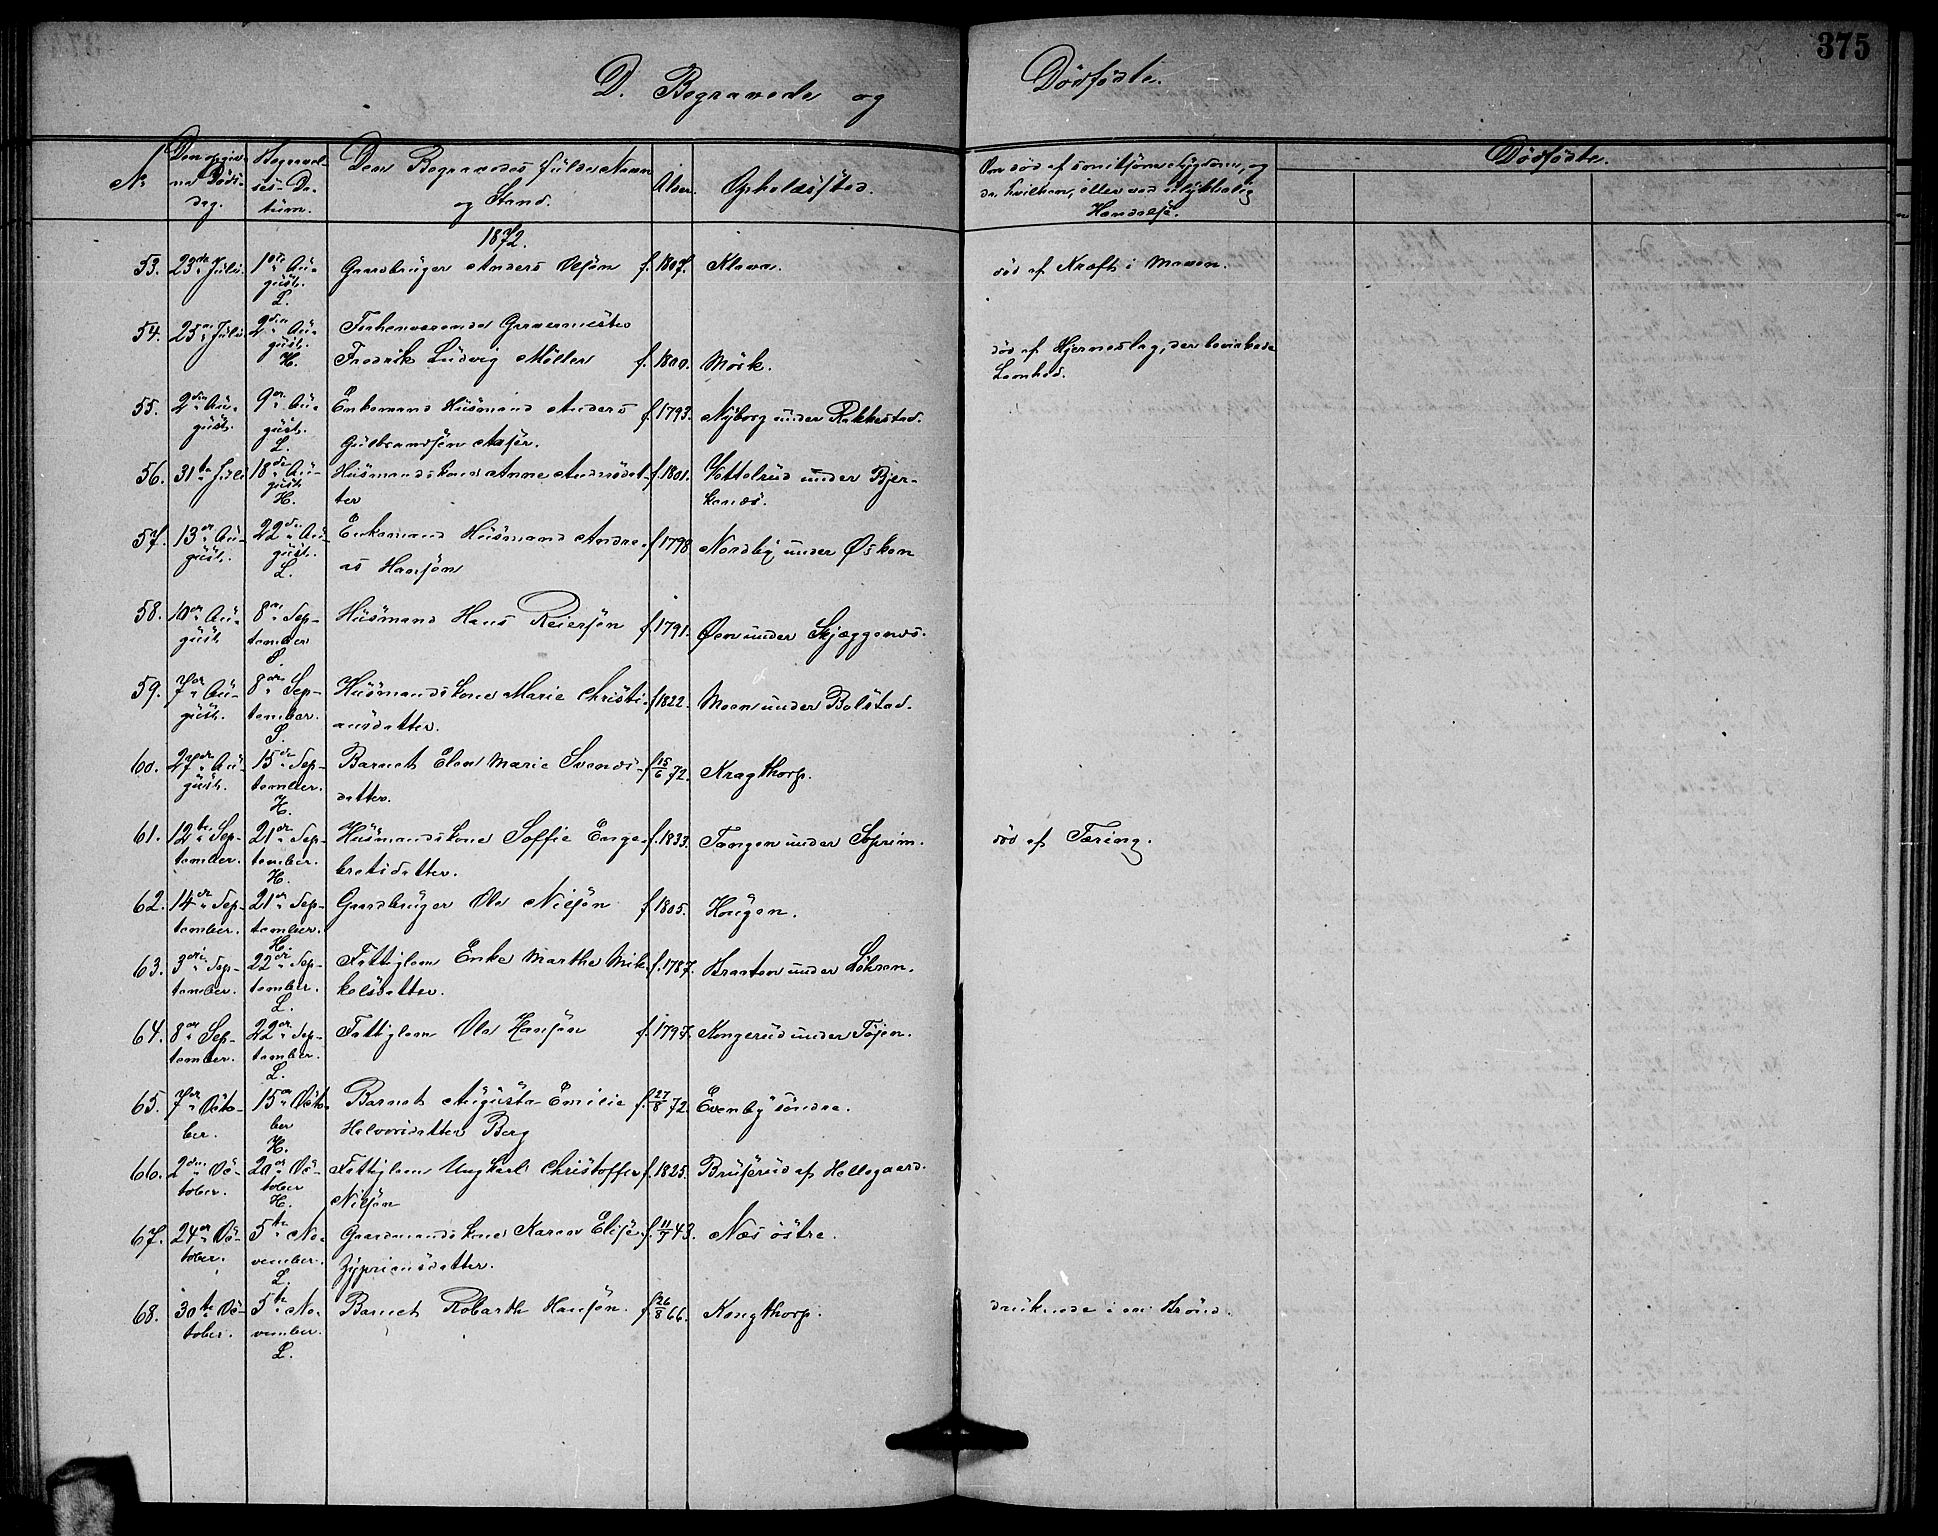 375
D. Begravede og Dödfödte.
No Den opgivne Dödsdag. Begravelses-Datum. Den Begravedes fulde Navn og Stand. Alder. Opholdssted. Om död af smitsom Sygdom, og da hvilken, eller ved ulykkelig Hændelse. Dödfödte.
1872.
53. 23de Juli. 1ste August. L. Gaardbruger Anders Olsön f. 1807. Klava. död af Kræft i Maven.
54. 25de Juli. 2den August. H. Forhenværende Garvermester
Fredrik Ludvig Möller f. 1800. Mörk. död af Hjerneslag, der bevirkede
Lamhed.
55. 2den August. 9de August. L. Enkemand Husmand Anders
Gulbrandsön Aaser. f. 1793. Nyborg under Rakkestad.
56. 31te Juli 18de August. H. Husmandskone Anne Andersdatter f. 1801. Vottelrud under Bjerkenæs.
57. 13de August. 22de August. L. Enkemand Husmand Andreas Hansön f. 1798 Nordby under Øsken
58. 10de August 8de September S. Husmand Hans Reiersön f. 1791. Øen under Skjæggenæs.
59. 7de August. 8de September. S. Husmandskone Marie Christiansdatter. f. 1822. Moen under Bolstad.
60. 27de August. 15de September. H. Barnet Elen Marie Svendsdatter. f. 15/6 72. Kragthorp.
61. 12te September. 21de September. H. Husmandskone Soffie Engebretsdatter. f. 1833. Tangen under Soprim. död af Tæring.
62. 14de September. 21de September. H. Gaardbruger Ole Nilsön f. 1805. Hougen.
63. 3die September. 22de September. L. Fattiglem Enke Marthe Mikkelsdatter. f. 1787. Braaten under Lökren.
64. 8de September. 22de September. L. Fattiglem Ole Hansön f. 1797. Kongerud under Töjen.
65. 7de October. 15de October H. Barnet Augusta Emilie
Halvorsdatter Berg f. 27/8 72. Evenby söndre.
66. 2den October. 20de October H. Fattiglem Ungkarl Christoffer
Nilsön f. 1825. Bruserud af Hellegaard.
67. 24de October. 5te November. L. Gaardmandskone Karen Elise
Zypriansdatter. f. 11/7 43. Næs östre.
68. 30te October. 5te November. L. Barnet Robarth Hansön. f. 26/8 66. Kongthorp. druknede i en Brönd.